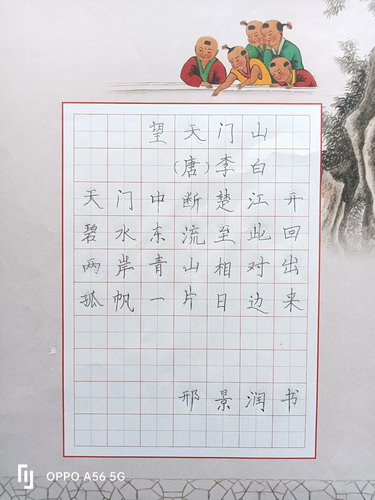 望天门山
（唐）李白
天门中断楚江开
碧水东流至此回
两岸青山相对出
孤帆一片日边来
邢景润书
OPPO A56 5G